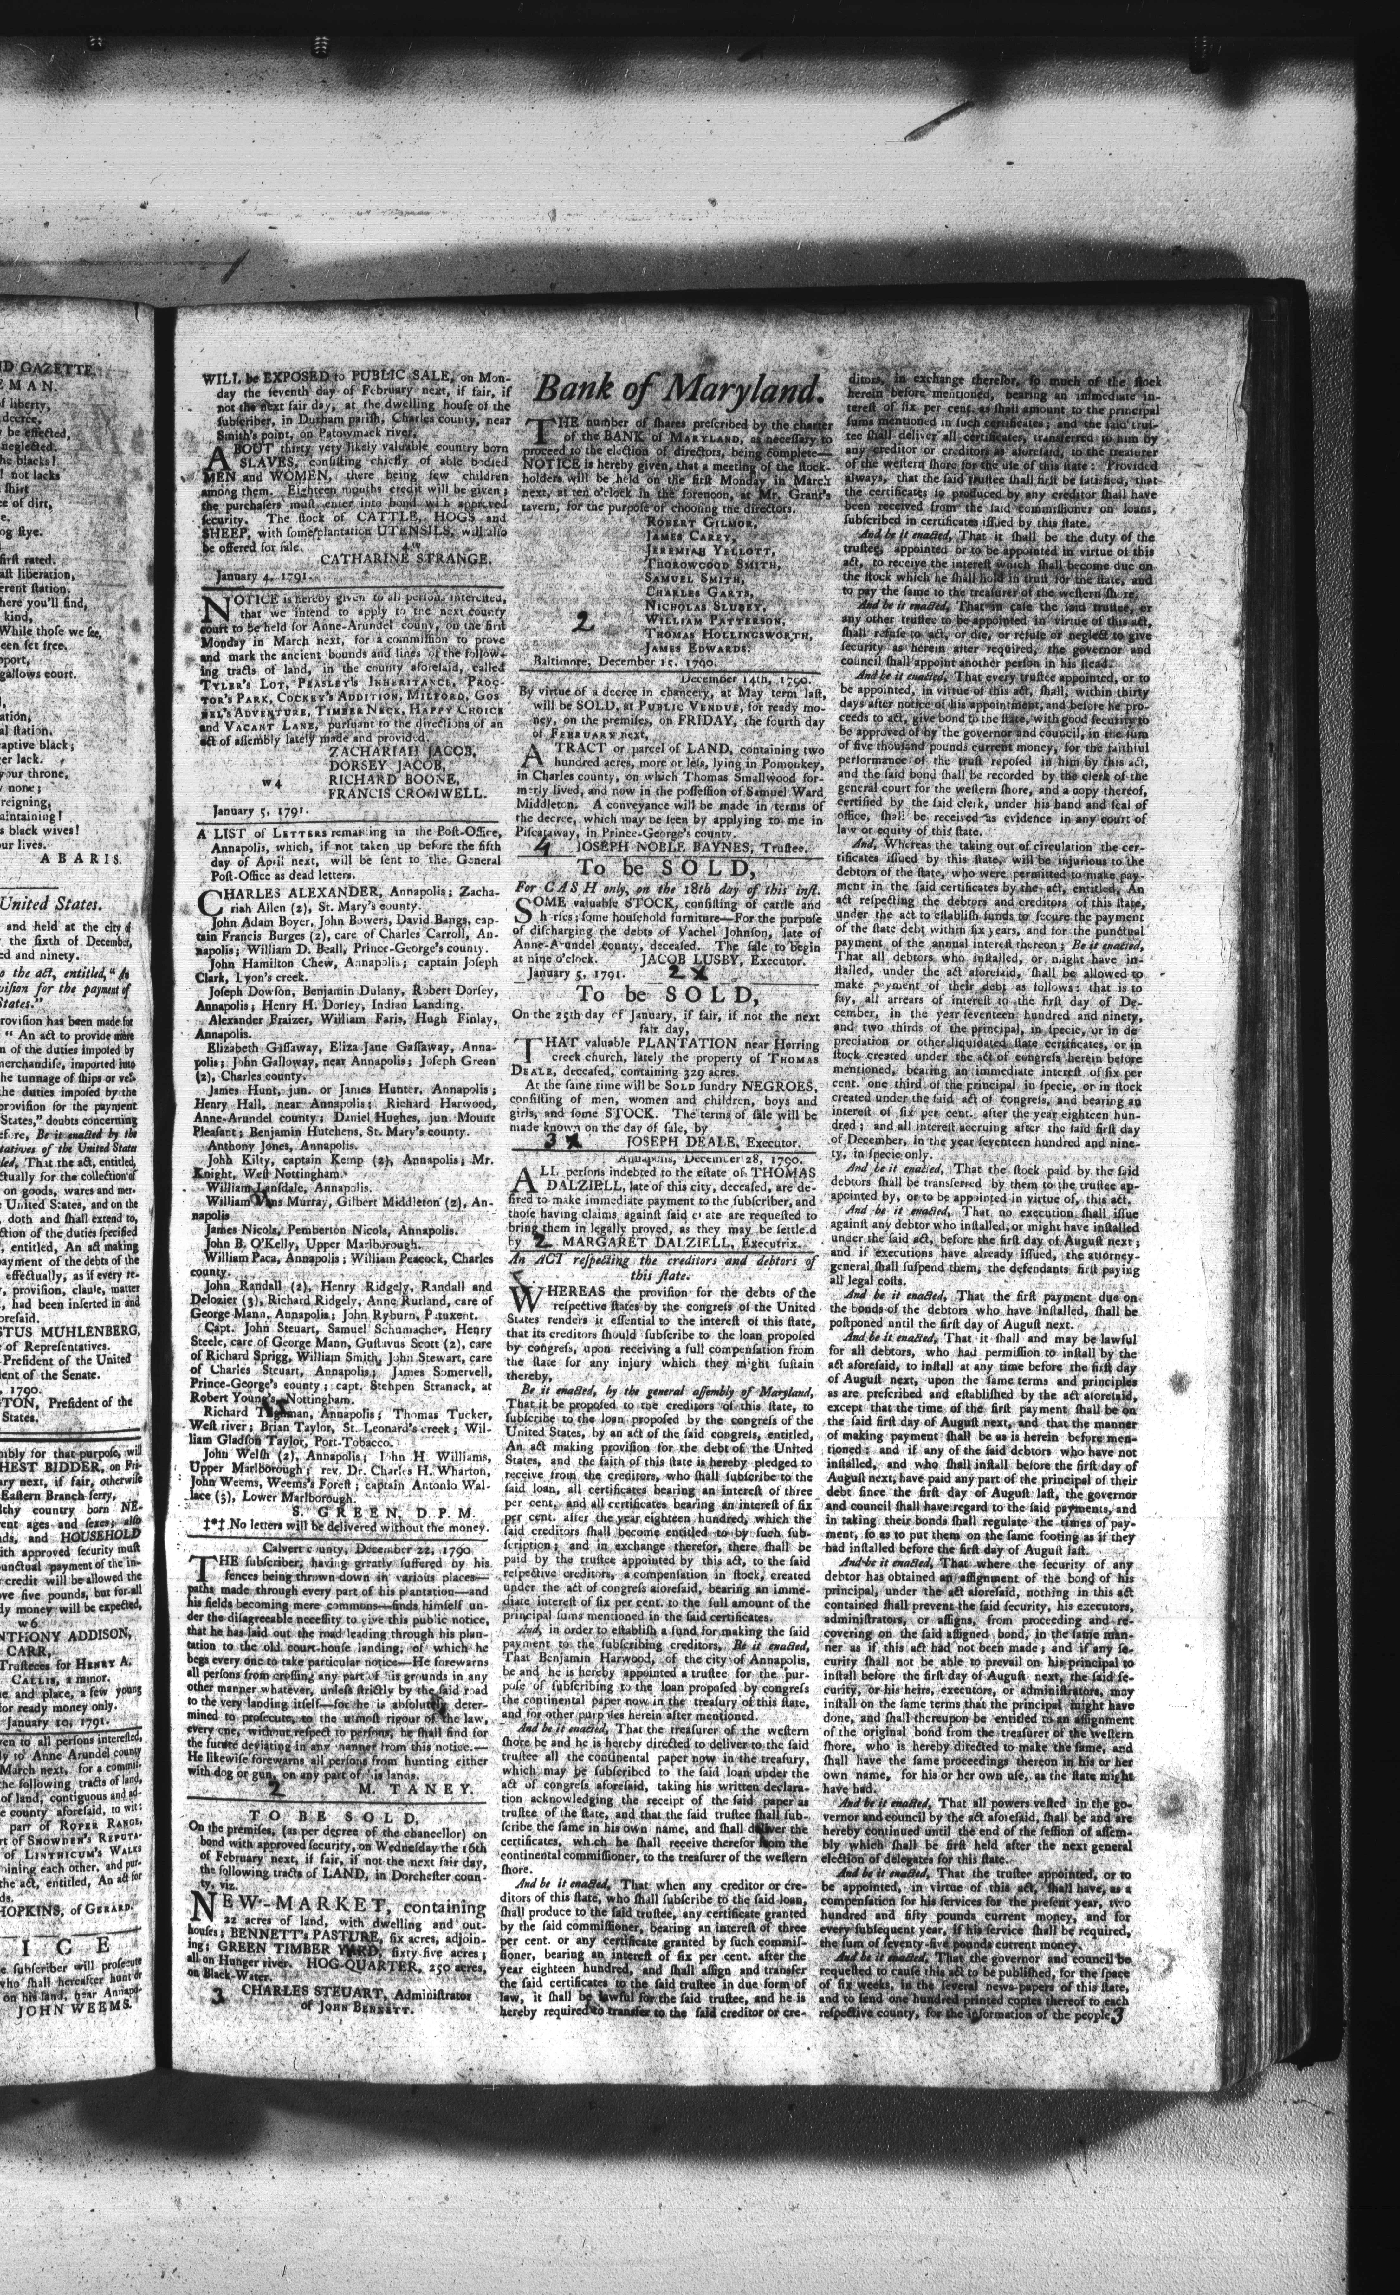 ND GAZETTE.
EMAN.
of liberty,
decree,
be effected,
neglected.
he blacks!
not lacks
shirt
ce of dirt,
og stye.
first rated.
ast liberation,
erent station.
here you'll find,
kind,
While those we see,
een set free.
pport,
gallows court.
ation,
al station,
aptive black;
er lack.
your throne,
none;
reigning,
aintaining!
s black wives!
our lives.
ABARIS.
United States.
and held at the city of
the sixth of December,
ed and ninety.
o the act, entitled, " An
vision for the payment of
States."
provision has been made for
" An act to provide more
n of the duties imposed by
merchandise, imported into
he tunnage of ships or ves-
the duties imposed by the
provision for the payment
States," doubts concerning
efore, Be it enacted by the
tatives of the United States
led, That the act, entitled,
ctually for the collection of
on goods, wares and mer-
e United States, and on the
doth and shall extend to,
ction of the duties specified
, entitled, An act making
payment of the debts of the
effectually, as if every re-
, provision, clause, matter
, had been inserted in and
oresaid.
STUS MUHLENBERG,
e of Representatives.
President of the United
dent of the Senate.
, 1790.
TON, President of the
States.
mbly for that purpose, will
HEST BIDDER, on Fri-
ry next, if fair, otherwise
Eastern Branch ferry,
lthy country born NE-
rent ages and sexes; also
ds, and HOUSEHOLD
ith approved security must
punctual payment of the in-
credit will be allowed the
ove five pounds, but for all
dy money will be expected,
w6
NTHONY ADDISON,
CARR,
Trustees for HENRY A.
CALLIS, a minor.
e and place, a few young
for ready money only.
January 10, 1791.
ven to all persons interested,
ly to Anne Arundel county
March next, for a commis-
the following tracts of land,
of land, contiguous and ad-
e county aforesaid, to wit:
part of ROPER RANGE,
rt of SNOWDEN'S REPUTA-
of LINTHICUM'S WALKS
oining each other, and pur-
the act, entitled, An act for
ds.
HOPKINS, of GERARD.
ICE
e subscriber will prosecute
who shall hereafter hunt or
on his land, near Annapo-
JOHN WEEMS.
WILL be EXPOSED to PUBLIC SALE, on Mon-
day the seventh day of February next, if fair, if
not the next fair day, at the dwelling house of the
subscriber, in Durham parish, Charles county, near
Smith's point, on Patowmack river,
ABOUT thirty very likely valuable country born
SLAVES, consisting chiefly of able bodied
MEN and WOMEN, there being few children
among them. Eighteen months credit will be given;
the purchasers must enter into bond with approved
security. The stock of CATTLE, HOGS and
SHEEP, with some plantation UTENSILS, will also
be offered for sale.
CATHARINE STRANGE.
January 4, 1791.
NOTICE is hereby given to all persons interested,
that we intend to apply to the next county
court to be held for Anne-Arundel county, on the first
Monday in March next, for a commission to prove
and mark the ancient bounds and lines of the follow-
ing tracts of land, in the county aforesaid, called
TYLER'S LOT, PEASLEY'S INHERITANCE, PROC-
TOR'S PARK, COCKEY'S ADDITION, MILFORD, GOS
NEL'S ADVENTURE, TIMBER NECK, HAPPY CHOICE
and VACANT LANE, pursuant to the directions of an
act of assembly lately made and provided.
ZACHARIAH JACOB,
DORSEY JACOB,
w4 RICHARD BOONE,
FRANCIS CROMWELL.
January 5, 1791.
A LIST of LETTERS remaining in the Post-Office,
Annapolis, which, if not taken up before the fifth
day of April next, will be sent to the General
Post-Office as dead letters.
CHARLES ALEXANDER, Annapolis; Zacha-
riah Allen (2), St. Mary's county.
John Adam Boyer, John Bowers, David Bangs, cap-
tain Francis Burges (2), care of Charles Carroll, An-
napolis; William D. Beall, Prince-George's county.
John Hamilton Chew, Annapolis; captain Joseph
Clark, Lyon's creek.
Joseph Dowson, Benjamin Dulany, Robert Dorsey,
Annapolis; Henry H. Dorsey, Indian Landing.
Alexander Fraizer, William Faris, Hugh Finlay,
Annapolis.
Elizabeth Gassaway, Eliza Jane Gassaway, Anna-
polis; John Galloway, near Annapolis; Joseph Green
(2), Charles county.
James Hunt, jun. or James Hunter, Annapolis;
Henry Hall, near Annapolis; Richard Harwood,
Anne-Arundel county; Daniel Hughes, jun. Mount
Pleasant; Benjamin Hutchens, St. Mary's county.
Anthony Jones, Annapolis.
John Kilty, captain Kemp (2), Annapolis; Mr.
Knight, West Nottingham.
William Lansdale, Annapolis.
William Vans Murray, Gilbert Middleton (2), An-
napolis
James Nicols, Pemberton Nicols, Annapolis.
John B. O'Kelly, Upper Marlborough.
William Paca, Annapolis; William Peacock, Charles
county.
John Randall (2), Henry Ridgely, Randall and
Delozier (3), Richard Ridgely, Anne Rutland, care of
George Mann, Annapolis; John Ryburn, Patuxent.
Capt. John Steuart, Samuel Schumacher, Henry
Steele, care of George Mann, Gustavus Scott (2), care
of Richard Sprigg, William Smith, John Stewart, care
of Charles Steuart, Annapolis; James Somervell,
Prince-George's county; capt. Stehpen Stranack, at
Robert Young's, Nottingham.
Richard Tilghman, Annapolis; Thomas Tucker,
West river; Brian Taylor, St. Leonard's creek; Wil-
liam Gladson Taylor, Port-Tobacco.
John Welsh (2), Annapolis; John H Williams,
Upper Marlborough; rev. Dr. Charles H. Wharton,
John Weems, Weems's Forest; captain Antonio Wal-
lace (3), Lower Marlborough.
S. GREEN, D. P. M.
‡*‡ No letters will be delivered without the money.
Calvert county, December 22, 1790
THE subscriber, having greatly suffered by his
fences being thrown down in various places—
paths made through every part of his plantation—and
his fields becoming mere commons—finds himself un-
der the disagreeable necessity to give this public notice,
that he has laid out the road leading through his plan-
tation to the old court-house landing, of which he
begs every one to take particular notice—He forewarns
all persons from crossing any part of his grounds in any
other manner whatever, unless strictly by the said road
to the very landing itself—for he is absolutely deter-
mined to prosecute, to the utmost rigour of the law,
every one, without respect to persons, he shall find for
the future deviating in any manner from this notice.—
He likewise forewarns all persons from hunting either
with dog or gun, on any part of his lands.
2 M. TANEY.
TO BE SOLD,
On the premises, (as per decree of the chancellor) on
bond with approved security, on Wednesday the 16th
of February next, if fair, if not the next fair day,
the following tracts of LAND, in Dorchester coun-
ty, viz.
NEW-MARKET, containing
22 acres of land, with dwelling and out-
houses; BENNETT's PASTURE, six acres, adjoin-
ing; GREEN TIMBER YARD, sixty-five acres;
all on Hunger river. HOG-QUARTER, 250 acres,
on Black-Water.
3 CHARLES STEUART, Administrator
of JOHN BENNETT.
Bank of Maryland.
THE number of shares prescribed by the charter
of the BANK of MARYLAND, as necessary to
proceed to the election of directors, being complete—
NOTICE is hereby given, that a meeting of the stock-
holders will be held on the first Monday in March
next, at ten o'clock in the forenoon, at Mr. Grant's
tavern, for the purpose of choosing the directors.
ROBERT GILMOR,
JAMES CAREY,
JEREMIAH YELLOTT,
THOROWGOOD SMITH,
SAMUEL SMITH,
CHARLES GARTS,
NICHOLAS SLUBEY,
2 WILLIAM PATTERSON,
THOMAS HOLLINGSWORTH,
JAMES EDWARDS.
Baltimore, December 15, 1790.
December 14th, 1790.
By virtue of a decree in chancery, at May term last,
will be SOLD, at PUBLIC VENDUE, for ready mo-
ney, on the premises, on FRIDAY, the fourth day
of FEBRUARY next,
A TRACT or parcel of LAND, containing two
hundred acres, more or less, lying in Pomonkey,
in Charles county, on which Thomas Smallwood for-
merly lived, and now in the possession of Samuel Ward
Middleton. A conveyance will be made in terms of
the decree, which may be seen by applying to me in
Piscataway, in Prince-George's county.
4 JOSEPH NOBLE BAYNES, Trustee.
To be SOLD,
For CASH only, on the 18th day of this inst.
SOME valuable STOCK, consisting of cattle and
horses; some household furniture—For the purpose
of discharging the debts of Vachel Johnson, late of
Anne-Arundel county, deceased. The sale to begin
at nine o'clock. JACOB LUSBY, Executor.
January 5, 1791. 2 X
To be SOLD,
On the 25th day of January, if fair, if not the next
fair day,
THAT valuable PLANTATION near Herring
creek church, lately the property of THOMAS
DEALE, deceased, containing 329 acres.
At the same time will be SOLD sundry NEGROES,
consisting of men, women and children, boys and
girls, and some STOCK. The terms of sale will be
made known on the day of sale, by
3 X JOSEPH DEALE, Executor.
Annapolis, December 28, 1790.
ALL persons indebted to the estate of THOMAS
DALZIELL, late of this city, deceased, are de-
sired to make immediate payment to the subscriber, and
those having claims against said estate are requested to
bring them in legally proved, as they may be settled
by 2 MARGARET DALZIELL, Executrix.
An ACT respecting the creditors and debtors of
this state.
WHEREAS the provision for the debts of the
respective states by the congress of the United
States renders it essential to the interest of this state,
that its creditors should subscribe to the loan proposed
by congress, upon receiving a full compensation from
the state for any injury which they might sustain
thereby,
Be it enacted, by the general assembly of Maryland,
That it be proposed to the creditors of this state, to
subscribe to the loan proposed by the congress of the
United States, by an act of the said congress, entitled,
An act making provision for the debt of the United
States, and the faith of this state is hereby pledged to
receive from the creditors, who shall subscribe to the
said loan, all certificates bearing an interest of three
per cent. and all certificates bearing an interest of six
per cent. after the year eighteen hundred, which the
said creditors shall become entitled to by such sub-
scription; and in exchange therefor, there shall be
paid by the trustee appointed by this act, to the said
respective creditors, a compensation in stock, created
under the act of congress aforesaid, bearing an imme-
diate interest of six per cent. to the full amount of the
principal sums mentioned in the said certificates.
And, in order to establish a fund for making the said
payment to the subscribing creditors, Be it enacted,
That Benjamin Harwood, of the city of Annapolis,
be and he is hereby appointed a trustee for the pur-
pose of subscribing to the loan proposed by congress
the continental paper now in the treasury of this state,
and for other purposes herein after mentioned.
And be it enacted, That the treasurer of the western
shore be and he is hereby directed to deliver to the said
trustee all the continental paper now in the treasury,
which may be subscribed to the said loan under the
act of congress aforesaid, taking his written declara-
tion acknowledging the receipt of the said paper as
trustee of the state, and that the said trustee shall sub-
scribe the same in his own name, and shall deliver the
certificates, which he shall receive therefor from the
continental commissioner, to the treasurer of the western
shore.
And be it enacted, That when any creditor or cre-
ditors of this state, who shall subscribe to the said loan,
shall produce to the said trustee, any certificate granted
by the said commissioner, bearing an interest of three
per cent. or any certificate granted by such commis-
sioner, bearing an interest of six per cent. after the
year eighteen hundred, and shall assign and transfer
the said certificates to the said trustee in due form of
law, it shall be lawful for the said trustee, and he is
hereby required to transfer to the said creditor or cre-
ditors, in exchange therefor, so much of the stock
herein before mentioned, bearing an immediate in-
terest of six per cent. as shall amount to the principal
sums mentioned in such certificates; and the said trus-
tee shall deliver all certificates, transferred to him by
any creditor or creditors as aforesaid, to the treasurer
of the western shore for the use of this state: Provided
always, that the said trustee shall first be satisfied, that
the certificates so produced by any creditor shall have
been received from the said commissioner on loans,
subscribed in certificates issued by this state.
And be it enacted, That it shall be the duty of the
trustee, appointed or to be appointed in virtue of this
act, to receive the interest which shall become due on
the stock which he shall hold in trust for the state, and
to pay the same to the treasurer of the western shore.
And be it enacted, That in case the said trustee, or
any other trustee to be appointed in virtue of this act,
shall refuse to act, or die, or refuse or neglect to give
security as herein after required, the governor and
council shall appoint another person in his stead.
And be it enacted, That every trustee appointed, or to
be appointed, in virtue of this act, shall, within thirty
days after notice of his appointment, and before he pro-
ceeds to act, give bond to the state, with good security to
be approved of by the governor and council, in the sum
of five thousand pounds current money, for the faithful
performance of the trust reposed in him by this act,
and the said bond shall be recorded by the clerk of the
general court for the western shore, and a copy thereof,
certified by the said clerk, under his hand and seal of
office, shall be received as evidence in any court of
law or equity of this state.
And, Whereas the taking out of circulation the cer-
tificates issued by this state, will be injurious to the
debtors of the state, who were permitted to make pay-
ment in the said certificates by the act, entitled, An
act respecting the debtors and creditors of this state,
under the act to establish funds to secure the payment
of the state debt within six years, and for the punctual
payment of the annual interest thereon; Be it enacted,
That all debtors who installed, or might have in-
stalled, under the act aforesaid, shall be allowed to
make payment of their debt as follows: that is to
say, all arrears of interest to the first day of De-
cember, in the year seventeen hundred and ninety,
and two thirds of the principal, in specie, or in de
preciation or other liquidated state certificates, or in
stock created under the act of congress herein before
mentioned, bearing an immediate interest of six per
cent. one third of the principal in specie, or in stock
created under the said act of congress, and bearing an
interest of six per cent. after the year eighteen hun-
dred; and all interest accruing after the said first day
of December, in the year seventeen hundred and nine-
ty, in specie only.
And be it enacted, That the stock paid by the said
debtors shall be transferred by them to the trustee ap-
appointed by, or to be appointed in virtue of, this act.
And be it enacted, That no execution shall issue
against any debtor who installed, or might have installed
under the said act, before the first day of August next;
and if executions have already issued, the attorney-
general shall suspend them, the defendants first paying
all legal costs.
And be it enacted, That the first payment due on
the bonds of the debtors who have installed, shall be
postponed until the first day of August next.
And be it enacted, That it shall and may be lawful
for all debtors, who had permission to install by the
act aforesaid, to install at any time before the first day
of August next, upon the same terms and principles
as are prescribed and established by the act aforesaid,
except that the time of the first payment shall be on
the said first day of August next, and that the manner
of making payment shall be as is herein before men-
tioned: and if any of the said debtors who have not
installed, and who shall install before the first day of
August next, have paid any part of the principal of their
debt since the first day of August last, the governor
and council shall have regard to the said payments, and
in taking their bonds shall regulate the times of pay-
ment, so as to put them on the same footing as if they
had installed before the first day of August last.
And be it enacted, That where the security of any
debtor has obtained an assignment of the bond of his
principal, under the act aforesaid, nothing in this act
contained shall prevent the said security, his executors,
administrators, or assigns, from proceeding and re-
covering on the said assigned bond, in the same man-
ner as if this act had not been made; and if any se-
curity shall not be able to prevail on his principal to
install before the first day of August next, the said se-
curity, or his heirs, executors, or administrators, may
install on the same terms that the principal might have
done, and shall thereupon be entitled to an assignment
of the original bond from the treasurer of the western
shore, who is hereby directed to make the same, and
shall have the same proceedings thereon in his or her
own name, for his or her own use, as the state might
have had.
And be it enacted, That all powers vested in the go-
vernor and council by the act aforesaid, shall be and are
hereby continued until the end of the session of assem-
bly which shall be first held after the next general
election of delegates for this state.
And be it enacted, That the trustee appointed, or to
be appointed, in virtue of this act, shall have, as a
compensation for his services for the present year, two
hundred and fifty pounds current money, and for
every subsequent year, if his service shall be required,
the sum of seventy-five pounds current money.
And be it enacted, That the governor and council be
requested to cause this act to be published, for the space
of six weeks, in the several news-papers of this state,
and to send one hundred printed copies thereof to each
respective county, for the information of the people. 3